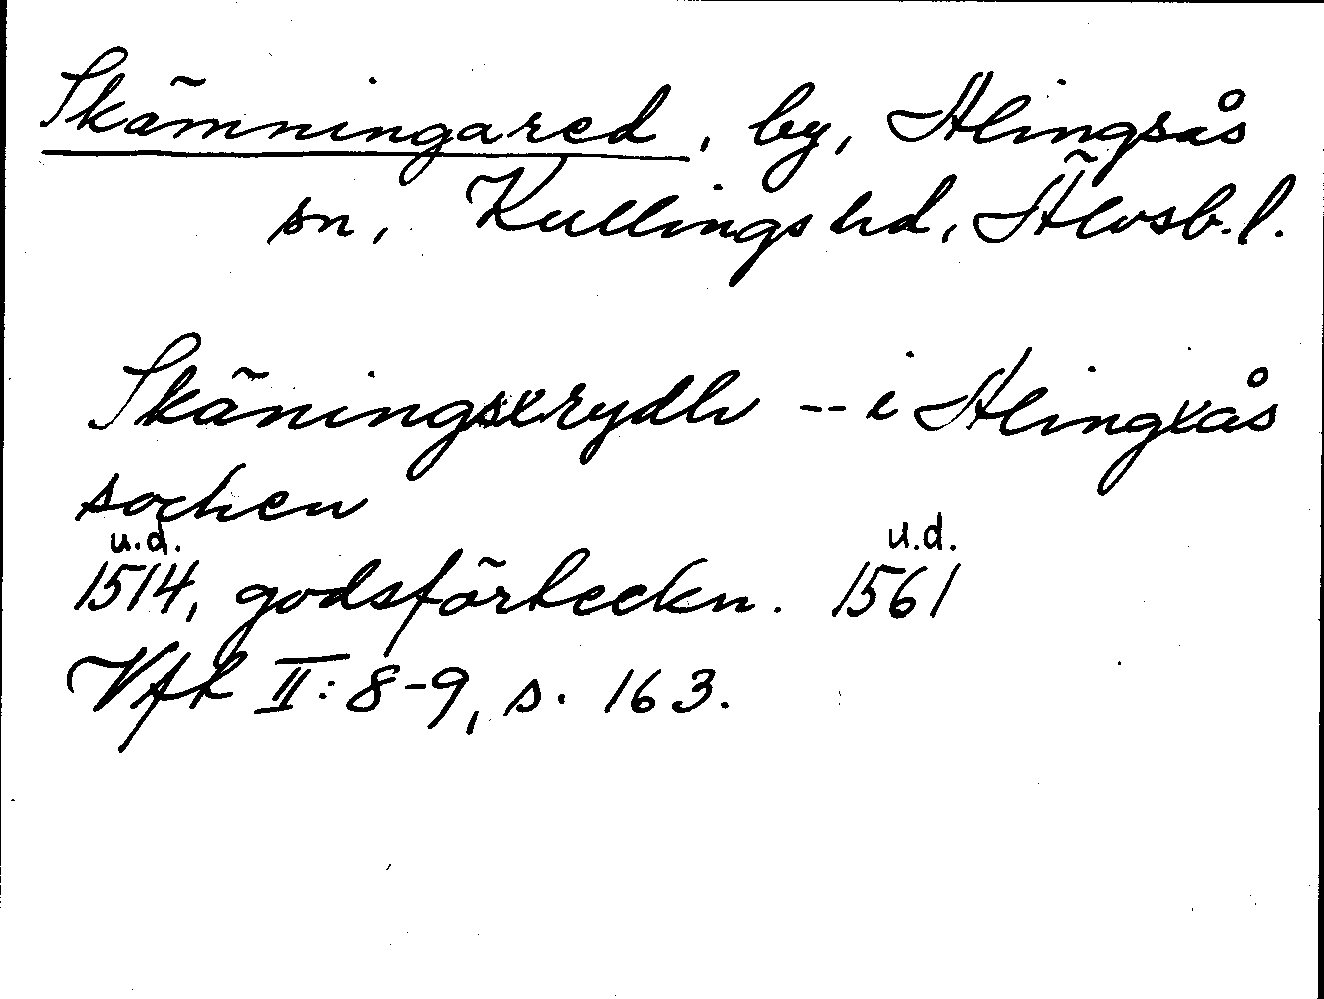 Skämningared, by, Alingsås
sn, Kullings hd, Älvsb. l.
Skäningxerydh -- i Alingxås
sochen
u.d. u.d.
1514, godsförteckn. 1561
Vfk II: 8-9, s. 163.